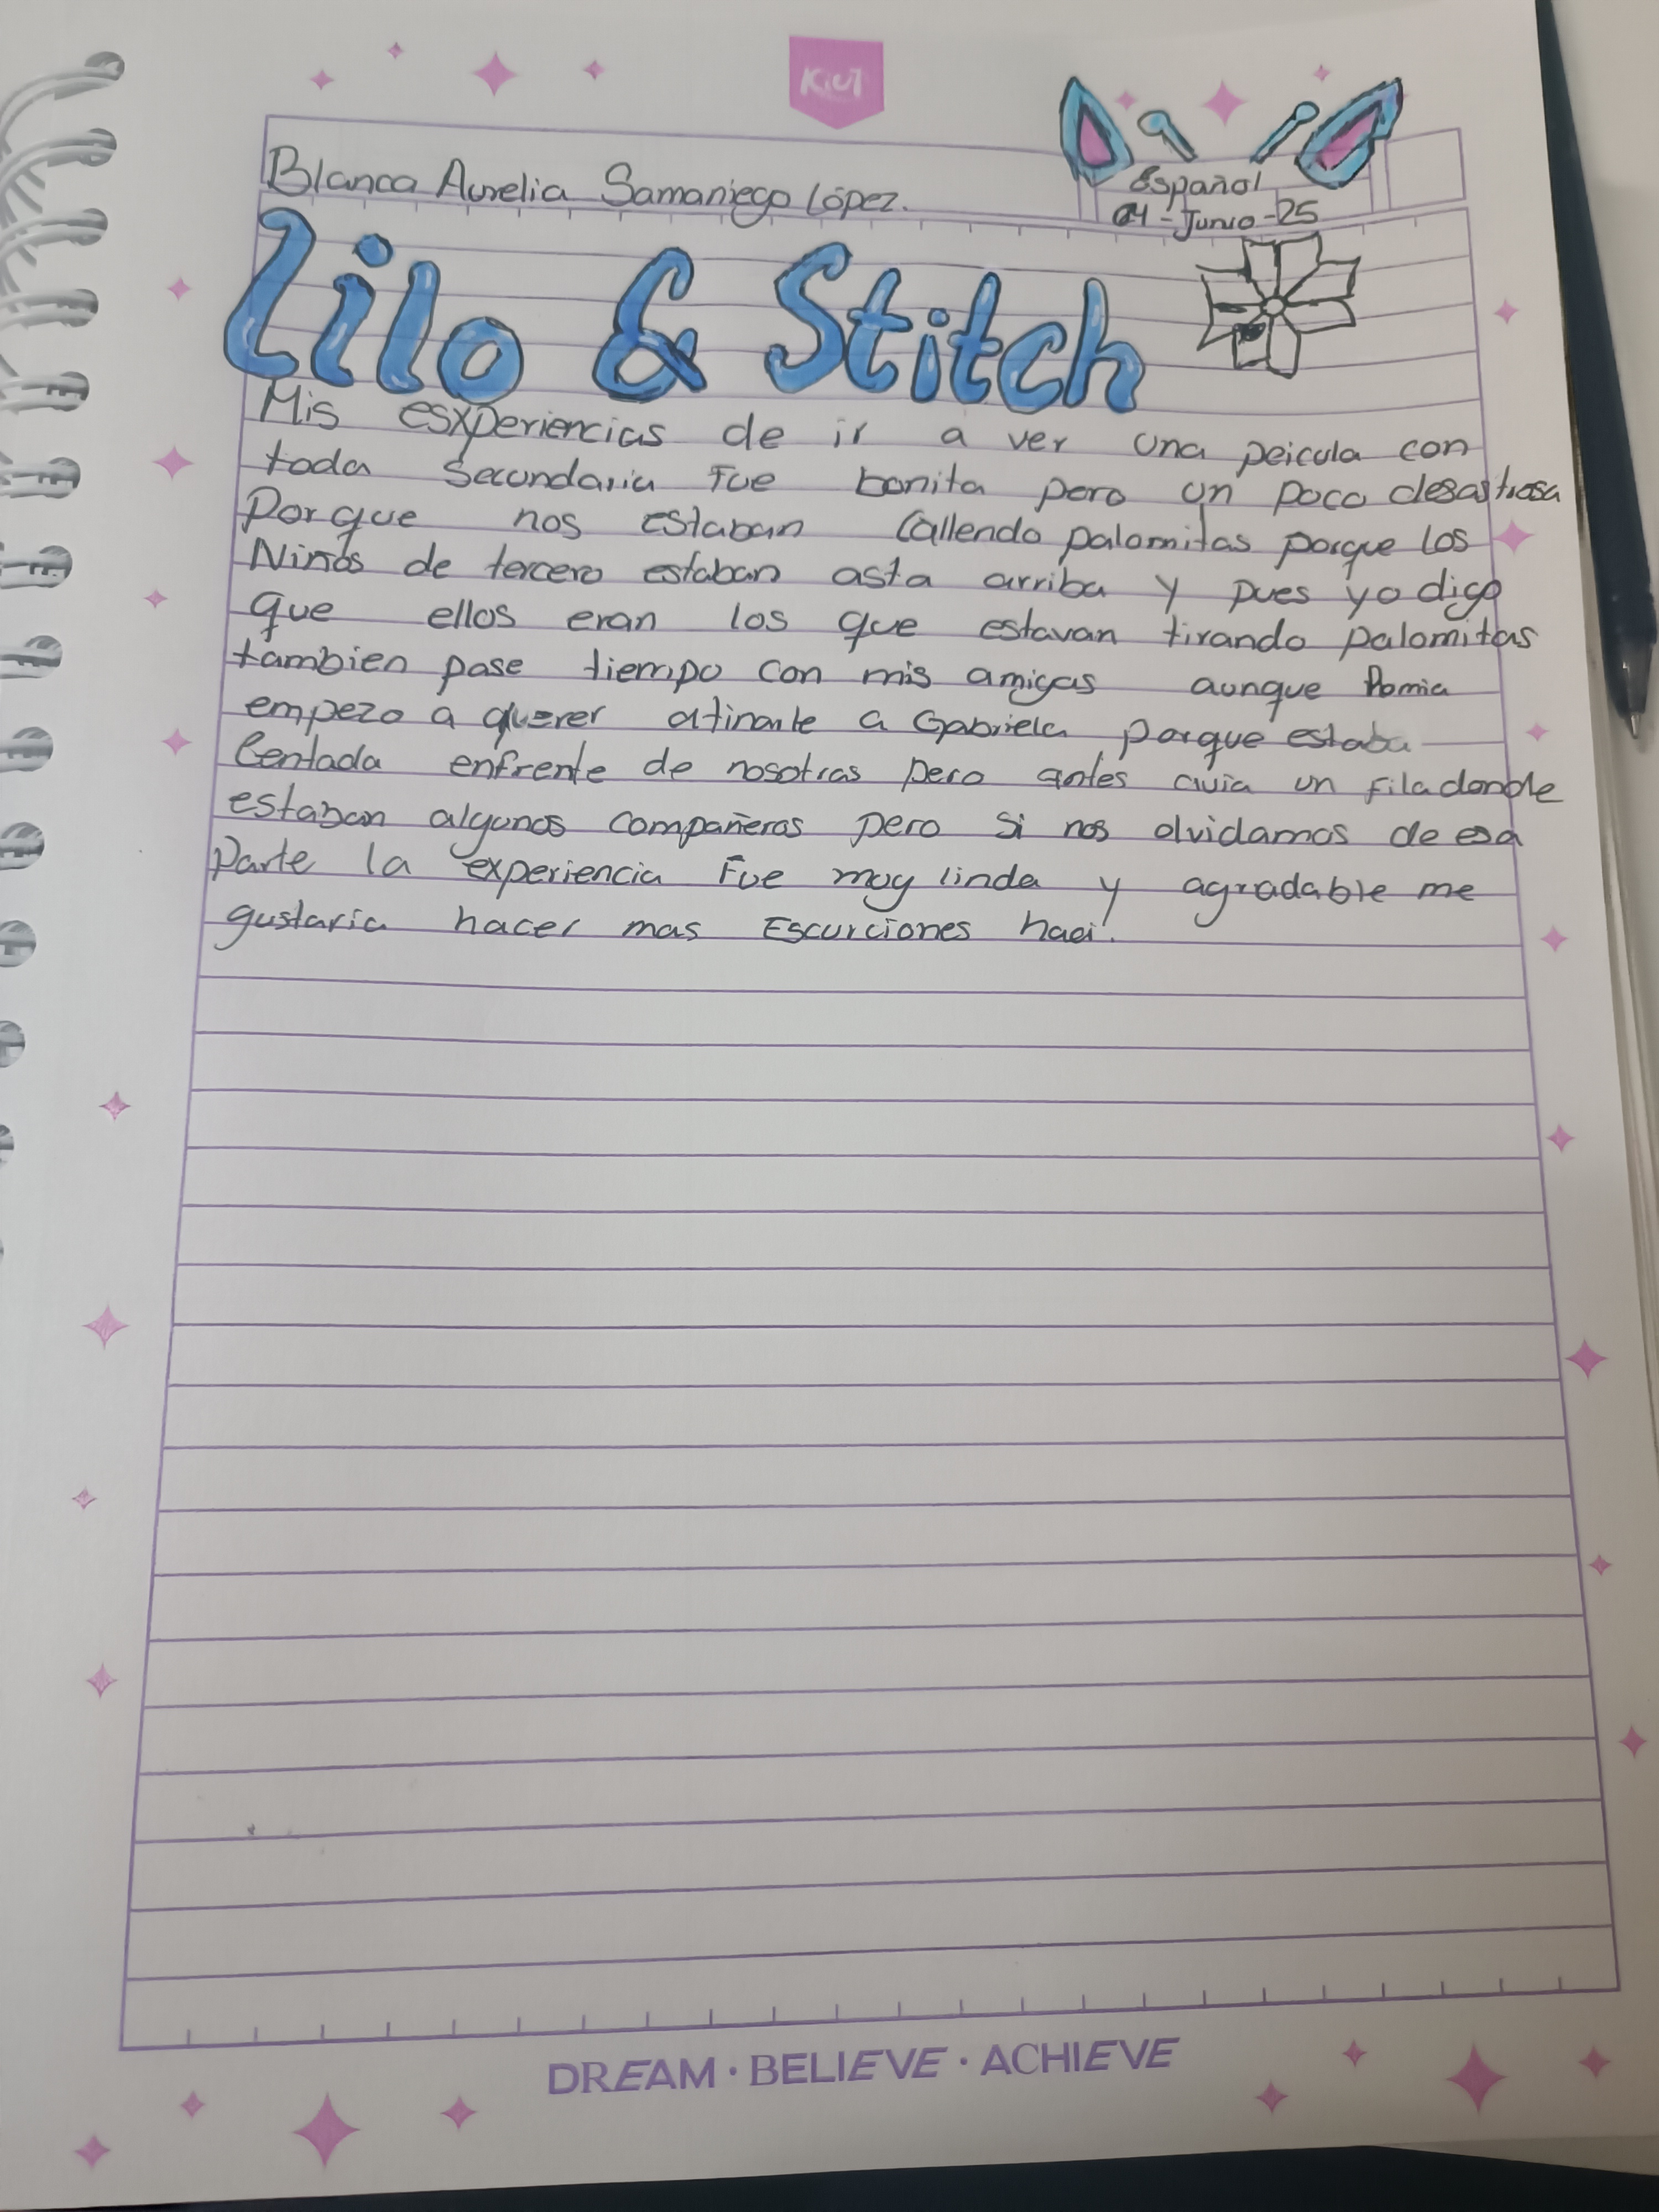 Kiut
Blanca Aurelia Samaniego López.
Español
04-Junio-25
Lilo & Stitch
Mis esxperiencias de ir a ver una peicula con
toda Secundaria Fue bonita pero un poco desastrosa
Porque nos estaban Callendo palomitas porque los
Niños de tercero estaban asta arriba y pues yo digo
que ellos eran los que estavan tirando palomitas
tambien pase tiempo con mis amigas aunque
empezo a querer atinarle a Gabriela porque estaba
Centada enfrente de nosotras pero antes avia un fila donde
estaban algunos compañeros pero si nos olvidamos de esa
Parte la experiencia Fue muy linda y agradable me
gustaria hacer mas Escurciones
DREAM · BELIEVE · ACHIEVE